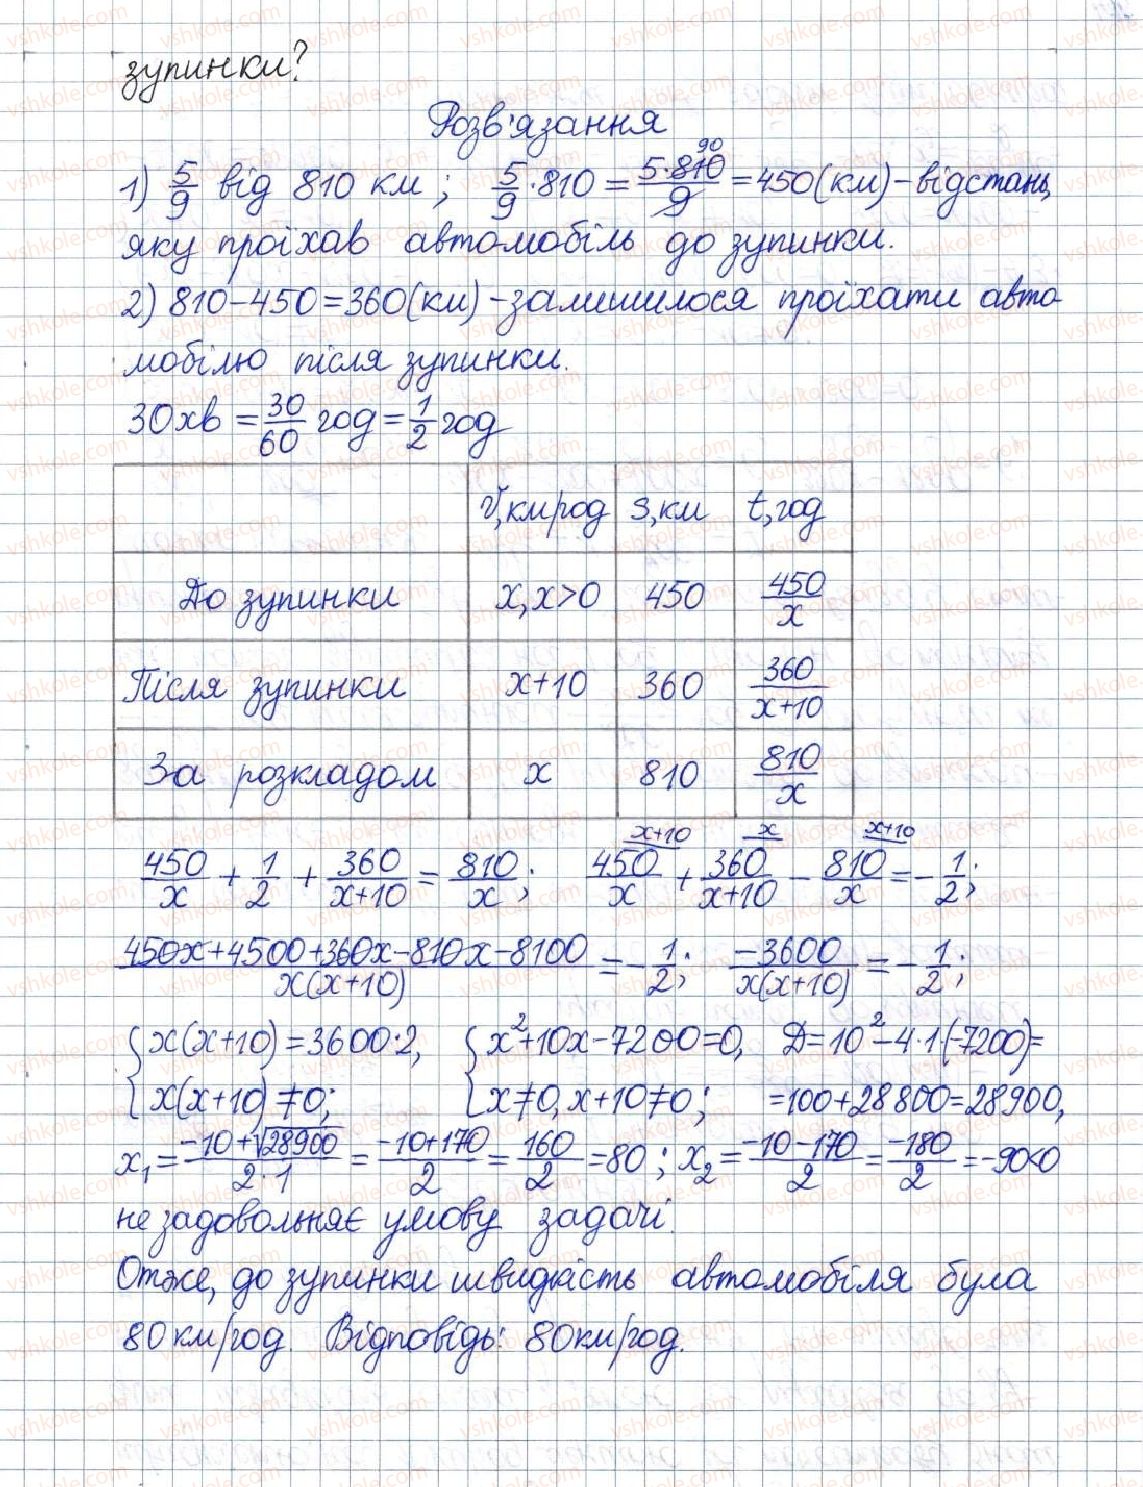 зупинки?
Розв'язання
1) 5/9 від 810 км ; 5/9 · 810 = 5·810/9 = 450(км) – відстань,
90
яку проїхав автомобіль до зупинки.
2) 810 – 450 = 360(км) – залишилося проїхати авто-
мобілю після зупинки.
30хв = 30/60 год = 1/2 год
V, км/год S, км t, год
До зупинки x, x>0 450 450/x
Після зупинки x+10 360 360/(x+10)
За розкладом x 810 810/x
x+10 x x+10
450/x + 1/2 + 360/(x+10) = 810/x ; 450/x + 360/(x+10) – 810/x = –1/2 ;
(450x+4500+360x–810x–8100)/(x(x+10)) = –1/2 ; –3600/(x(x+10)) = –1/2 ;
{ x(x+10) = 3600·2, { x²+10x–7200=0, D=10²–4·1·(–7200)=
x(x+10) ≠ 0; x≠0, x+10≠0; =100+28800=28900,
x₁ = (–10+√28900)/(2·1) = (–10+170)/2 = 160/2 = 80 ; x₂ = (–10–170)/2 = –180/2 = –90<0
не задовольняє умову задачі.
Отже, до зупинки швидкість автомобіля була
80км/год. Відповідь: 80км/год.
vshkole.com